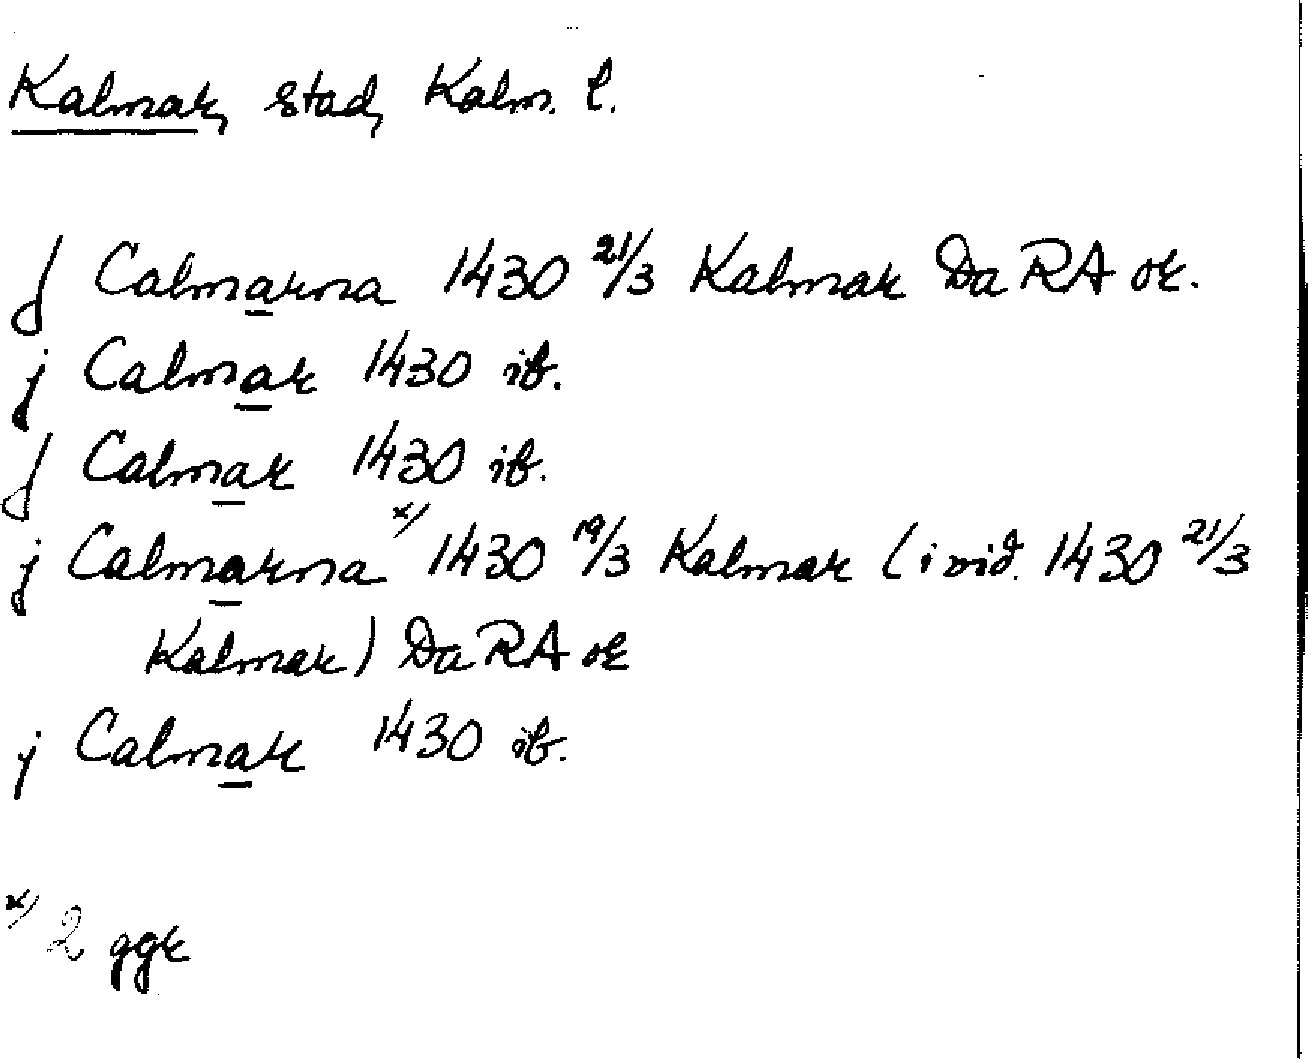 Kalmar, stad, Kalm. l.
j Calmarna 1430 21/3 Kalmar Da RA or.
j Calmar 1430 ib.
j Calmar 1430 ib.
j Calmarna x) 1430 19/3 Kalmar (i vid. 1430 21/3
Kalmar) Da RA or
j Calmar 1430 ib.
x) 2 ggr